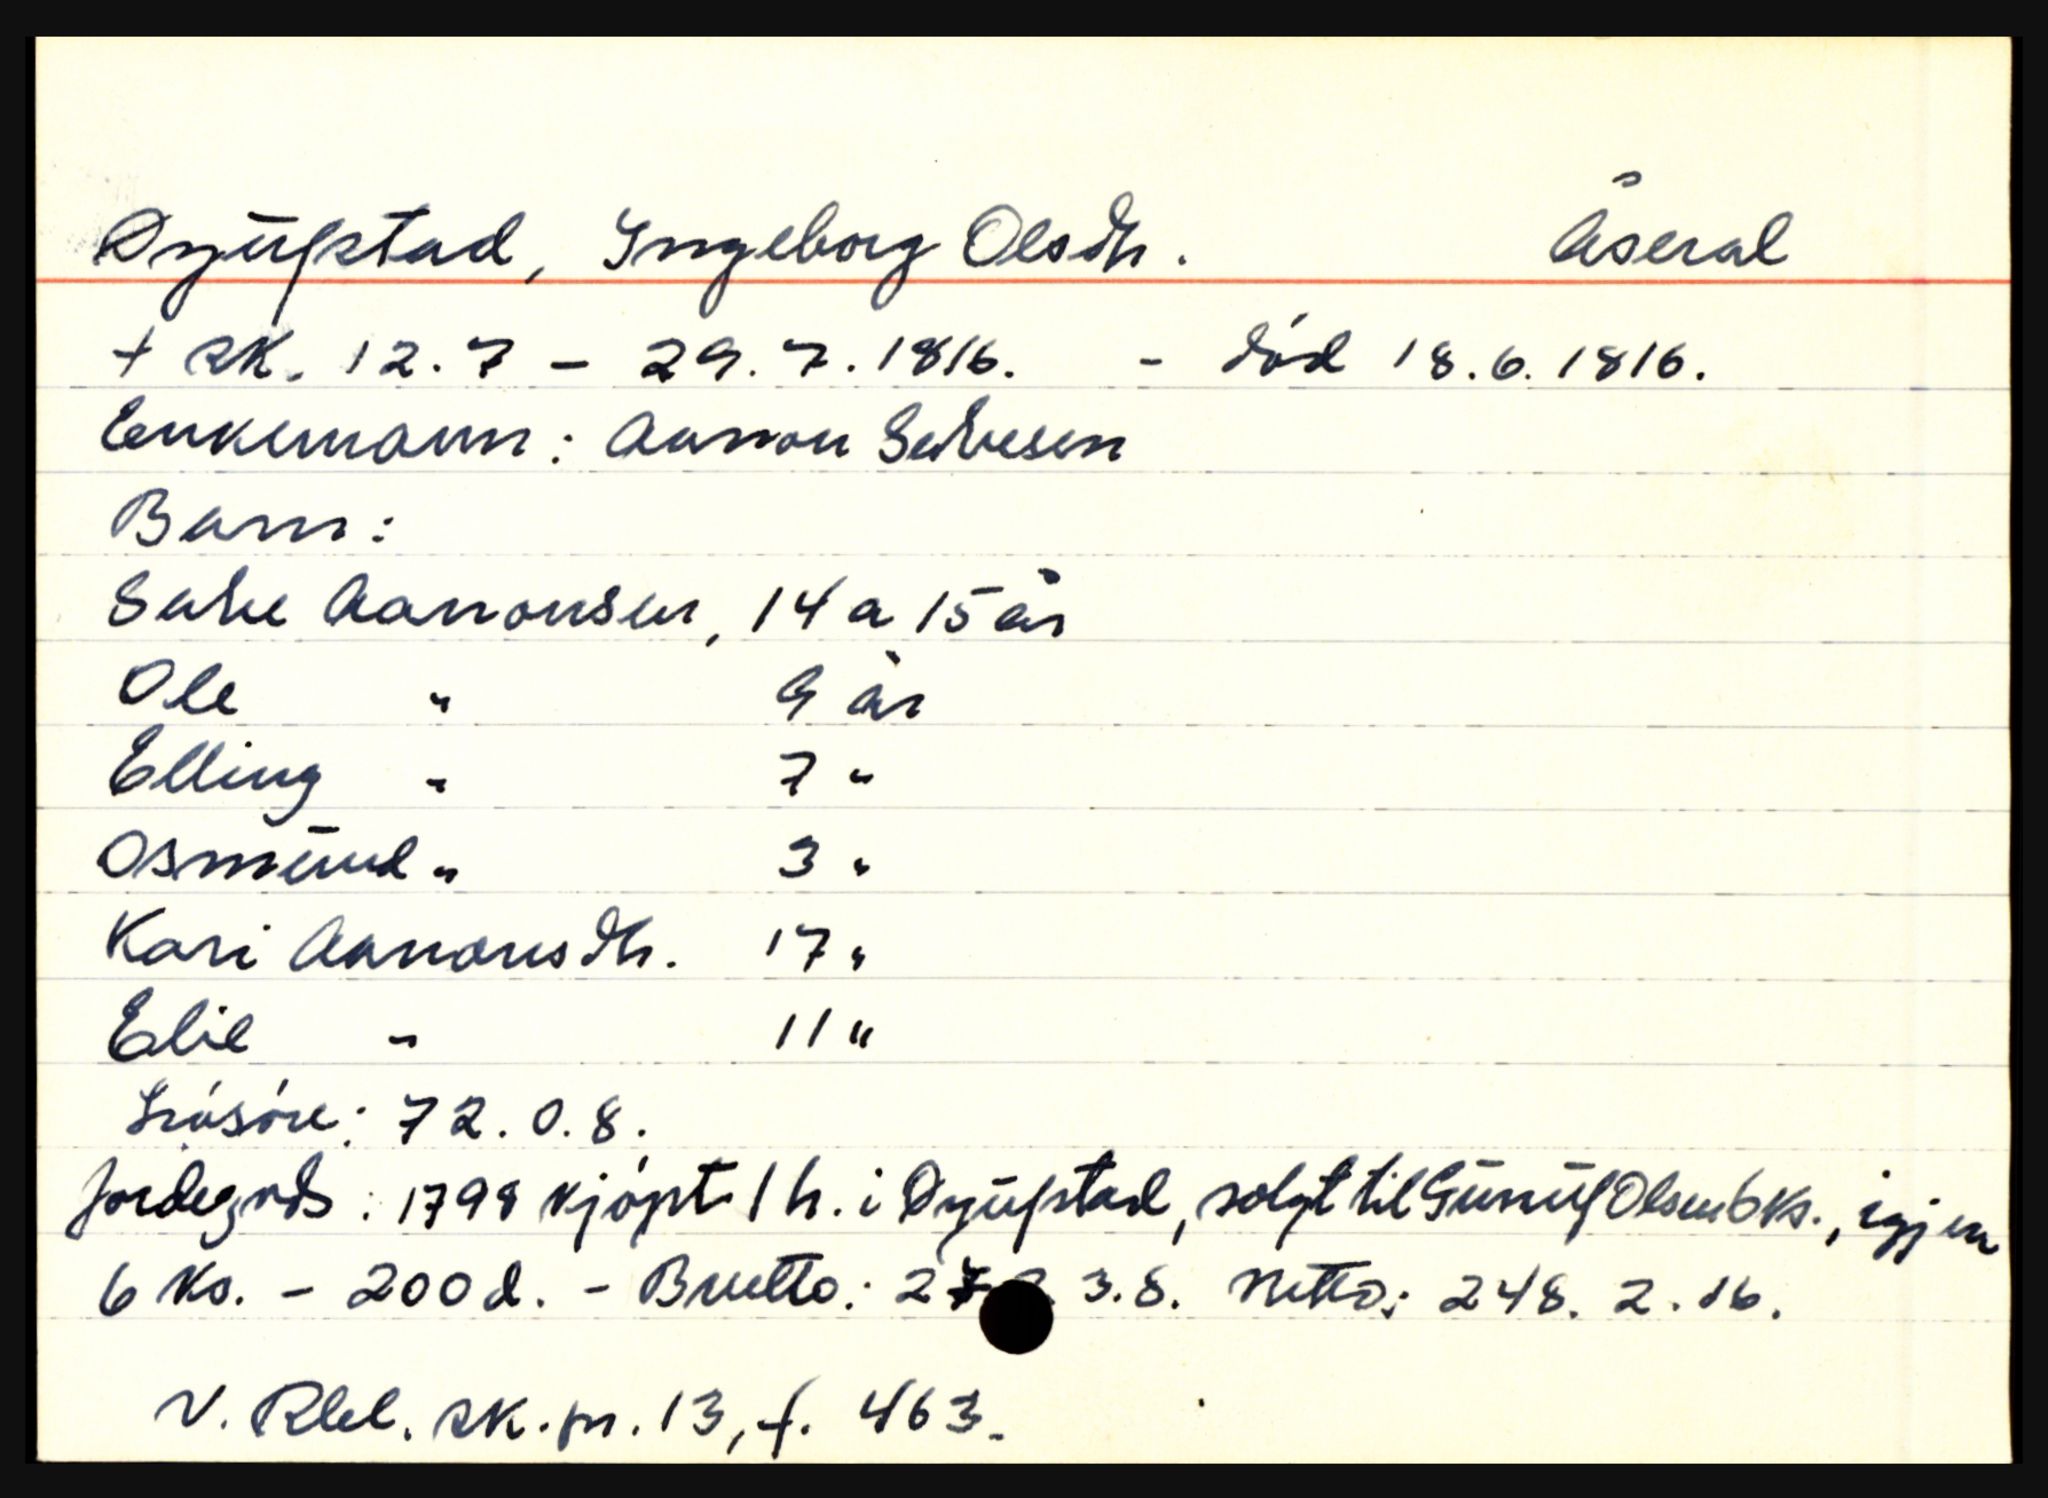 Dyrustad, Ingeborg Olsdtr. Åseral
+ sk. 12.7 - 29.7.1816. - død 18.6.1816.
Enkemann: Aanon Salvesen
Barn:
Salve Aanonsen, 14 a 15 år
Ole " 9 år
Elling " 7 "
Osmund " 3 "
Kari Aanonsdtr. 17 "
Elie " 11 "
Løsøre: 72.0.8.
Jordegods: 1798 kjøpt 1 h. i , solgt til Olsen 6 ks., igjen
6 ks. - 200 d. - Brutto: 27 3.8. Netto: 248. 2. 16.
V. Rbl. sk.pr. 13, f. 463.